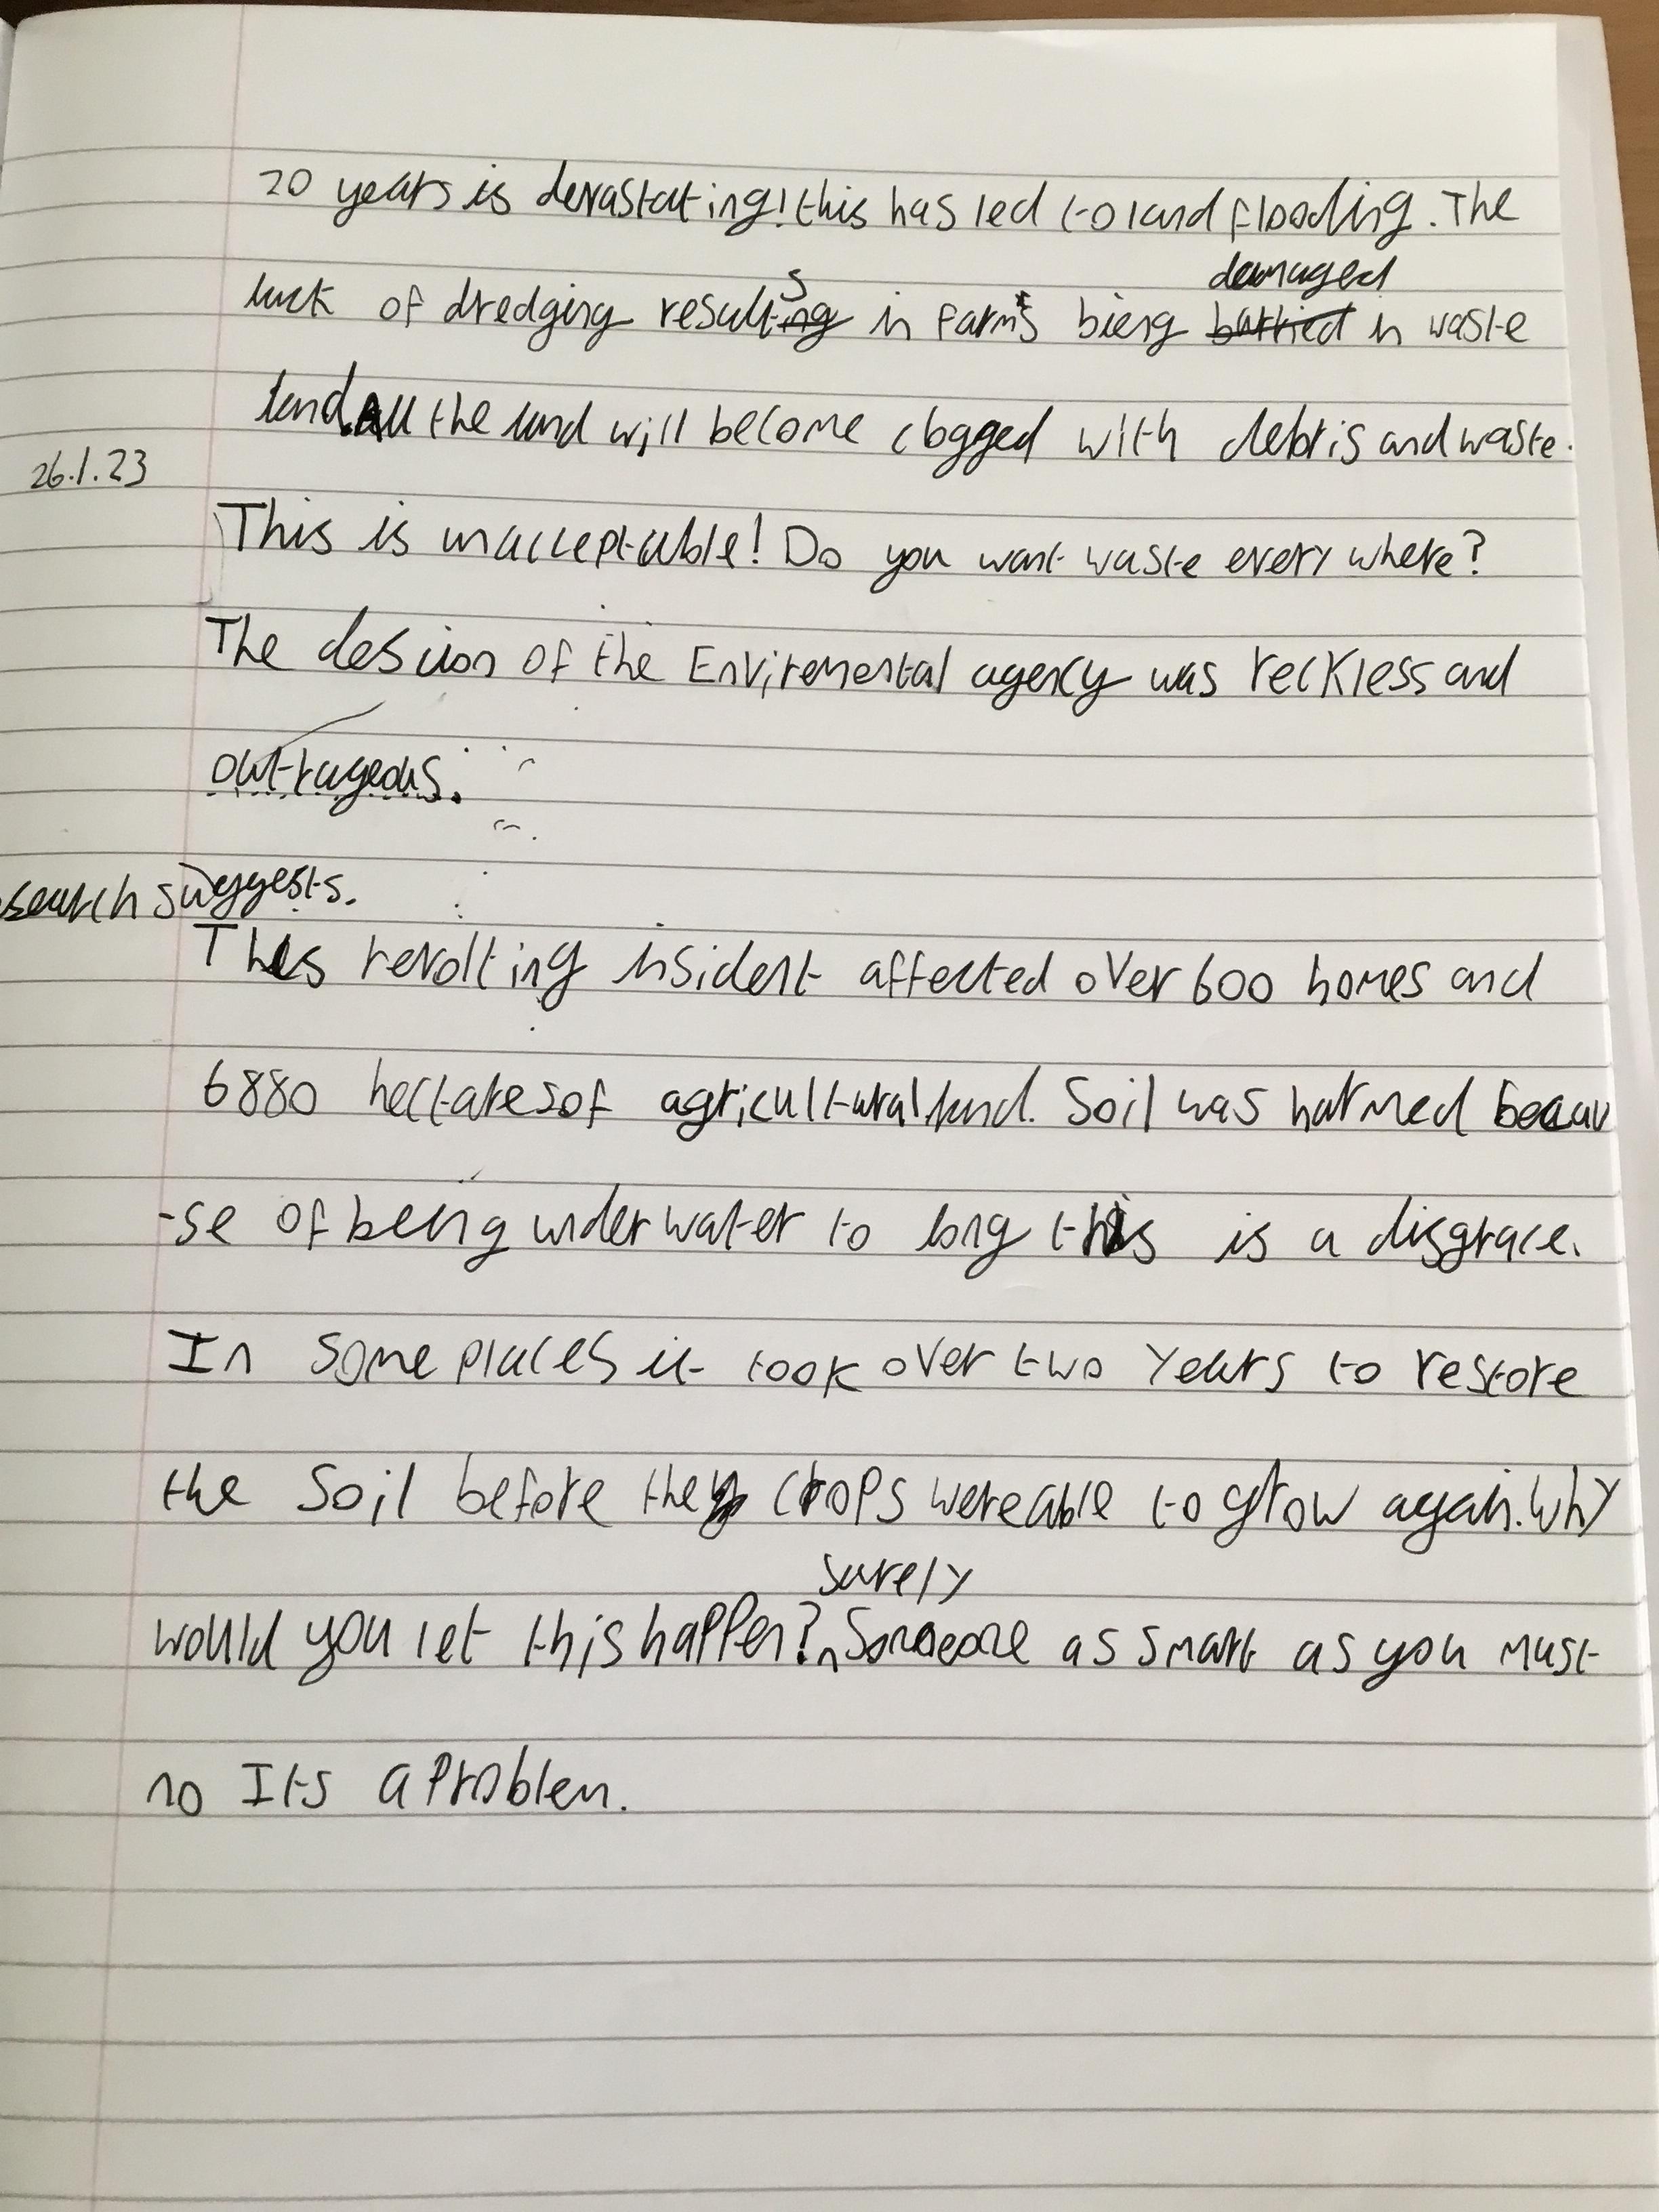 20 years is devastating! this has led to land flooding. The
damaged
lack of dredging results in farms bieng burried in waste
land. All the land will become clogged with debris and waste.
26.1.23
This is unacceptable! Do you want waste every where?
The desicion of the Enviremental agency was reckless and
outrageous.
search suggests.
This revolting insident affected over 600 homes and
6880 hectares of agricultural land. Soil was harmed becau
-se of being under water to long this is a disgrace.
In some places it took over two years to restore
the soil before the crops were able to grow again. Why
surely
would you let this happen? Someone as smart as you must
no Its a problem.